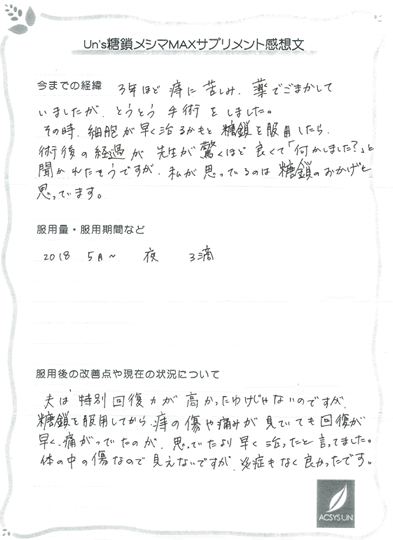 Un's糖鎖メシマMAXサプリメント感想文
今までの経緯 3年ほど 痔に 苦しみ、薬でごまかして
いましたが、とうとう 手術をしました。
その時、細胞が早く治るかもと 糖鎖を服用したら、
術後の経過が 先生が驚くほど良くて「何かしました?」と
聞かれたそうですが、私が思っているのは 糖鎖のおかげと
思っています。
服用量・服用期間など
2018 5月～ 夜 3滴
服用後の改善点や現在の状況について
夫は 特別 回復力が 高かったわけじゃないのですが、
糖鎖を服用してから、痔の傷や痛みが 見ていても回復が
早く、痛がっていたのが、思っていたより 早く 治ったと言ってました。
体の中の傷なので見えないですが、炎症もなく良かったです。
ACSYS UN